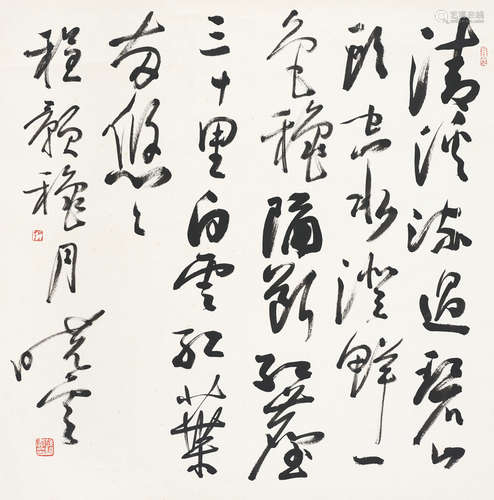 清溪流過碧山
頭空水澄鮮一
色穐隔斷紅塵
三十里白雲紅葉
两悠々
程顥穐月
曉雲